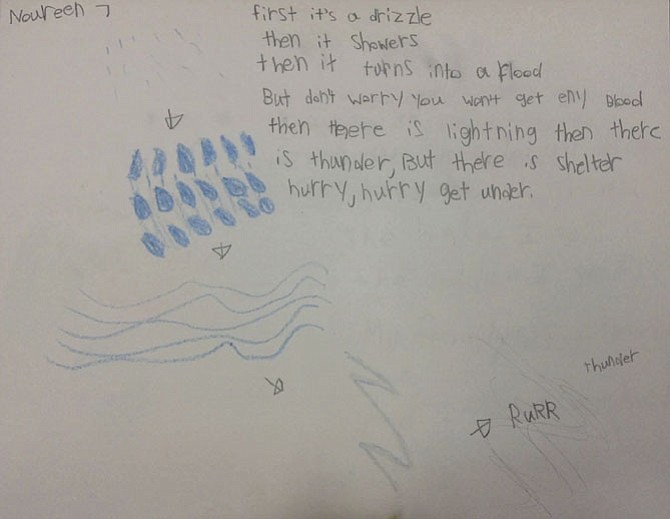 Noureen 7
first it's a drizzle
then it showers
then it turns into a flood
But don't worry you won't get eny blood
then there is lightning then there
is thunder, But there is shelter
hurry, hurry get under.
thunder
RuRR